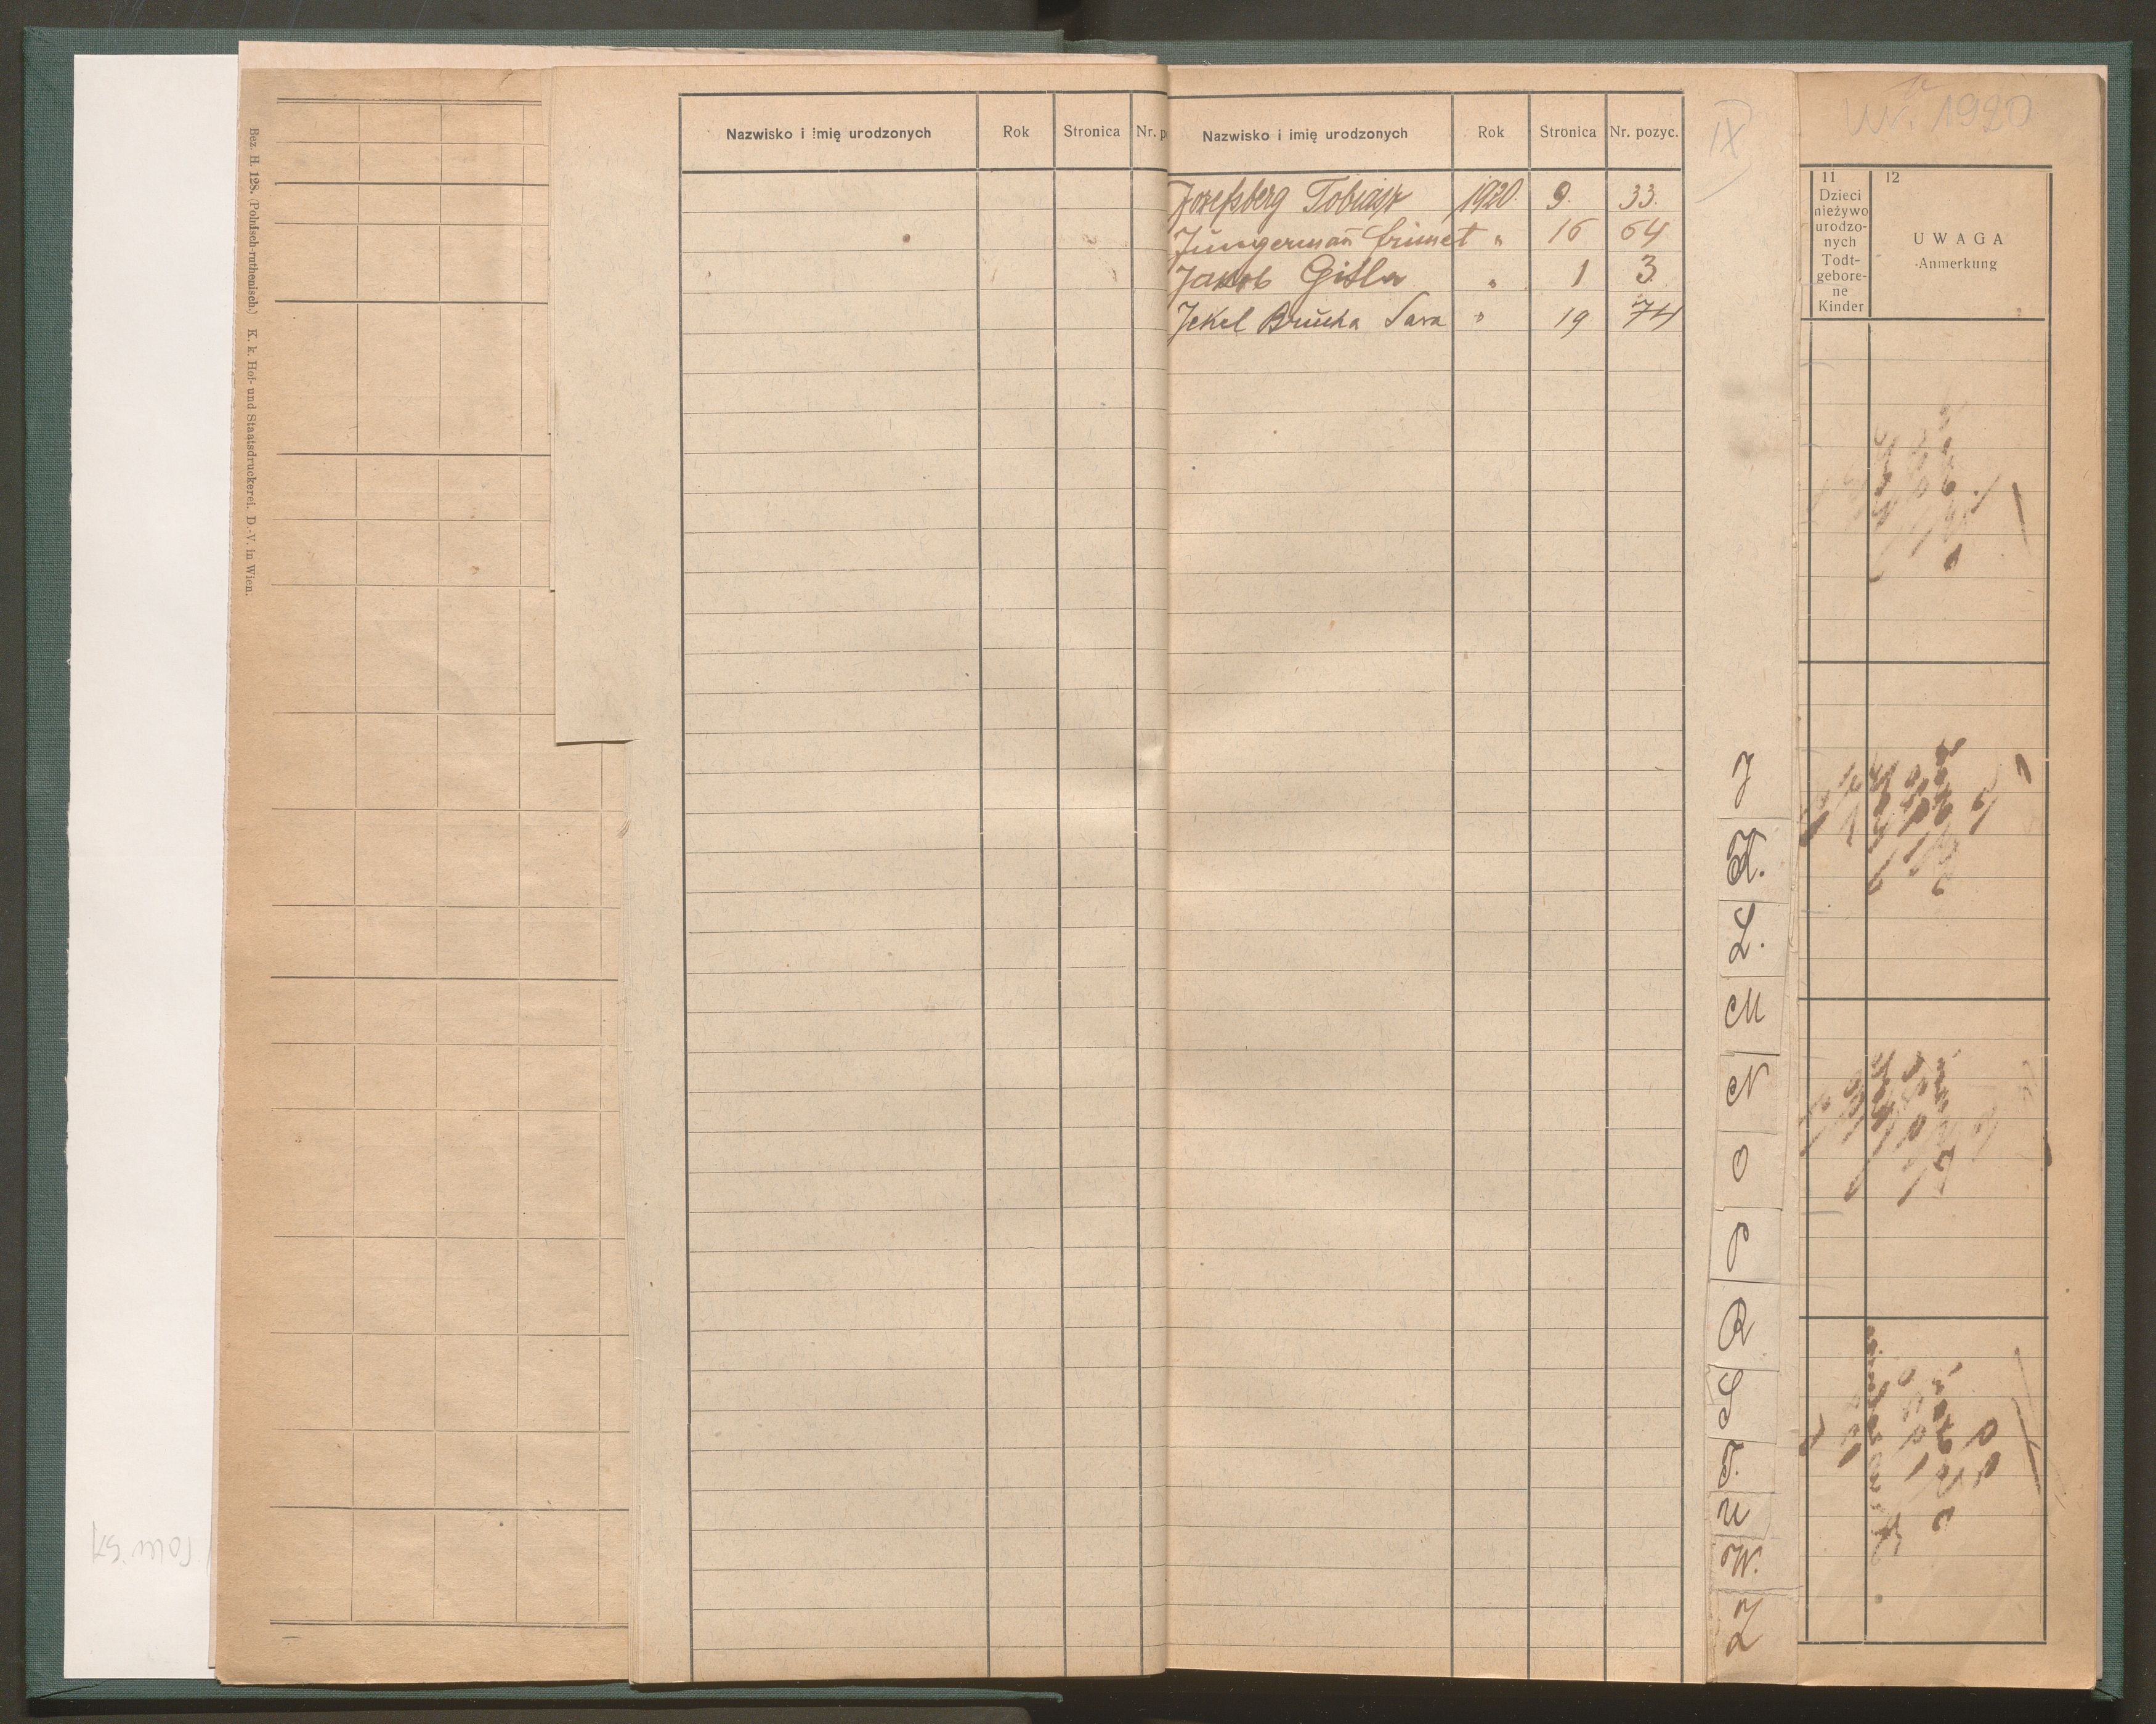 Bez. H. 128. (Polnisch-ruthenisch.) K. k. Hof- und Staatsdruckerei. D.-V. in Wien.
Nazwisko i imię urodzonych Rok Stronica Nr. p
Nazwisko i imię urodzonych Rok Stronica Nr. pozyc.
Josefsberg Tobiasz 1920. 9. 33.
Jüngerman̄ Frimet " 16 64
Jakob Gitla " 1 3.
Jekel Brŭcha Sara " 19 74
IX
J
K.
L.
M
N
O
P
R
S
T.
U
W.
Z
1920
11
Dzieci
nieżywo
urodzo-
nych
Todt-
gebore-
ne
Kinder
12
UWAGA
Anmerkung